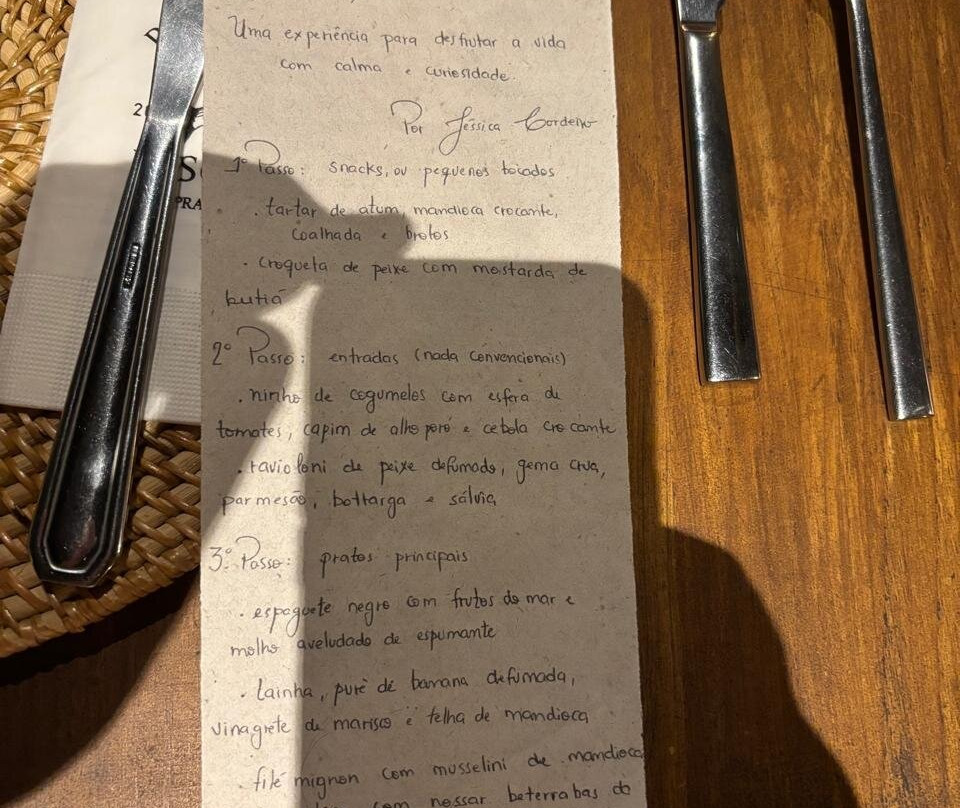 Uma experiência para desfrutar a vida
com calma e curiosidade.
Por Jéssica Cordeiro
1º Passo: snacks, ou pequenos bocados
. tartar de atum, mandioca crocante,
coalhada e brotos
. croqueta de peixe com mostarda de
butiá
2º Passo: entradas (nada convencionais)
. ninho de cogumelos com esfera de
tomates, capim de alho poró e cebola crocante
. ravioloni de peixe defumado, gema crua,
parmesão, bottarga e sálvia
3º Passo: pratos principais
. espaguete negro com frutos do mar e
molho aveludado de espumante
. tainha, purê de banana defumada,
vinagrete de marisco e telha de mandioca
. filé mignon com musselini de mandioca
com nossar beterrabas do